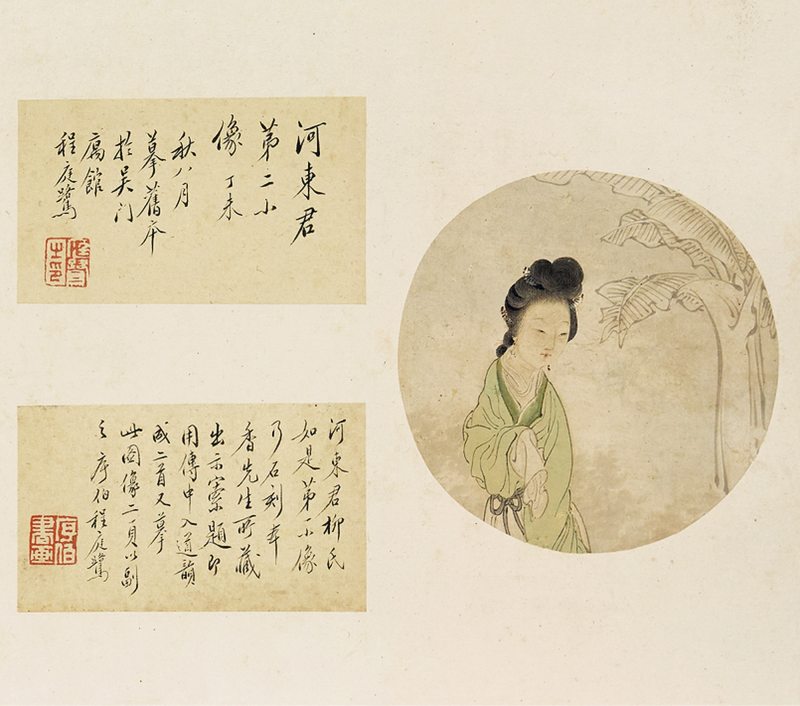 河東君
第二小
像 丁未
秋八月
摹舊本
於吳門
寓館
程庭鷺
河東君柳氏
如是第一小像
乃石刻本
香先生所藏
出示索題即
用傳中入道韻
成二首又摹
此圖像二頁以副
之 序伯程庭鷺
序伯
書畫